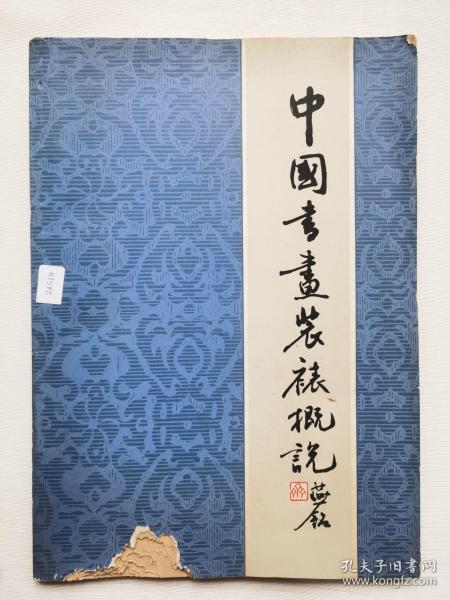 中國書畫裝裱概説
燕銘
孔夫子旧书网
www.kongfz.com